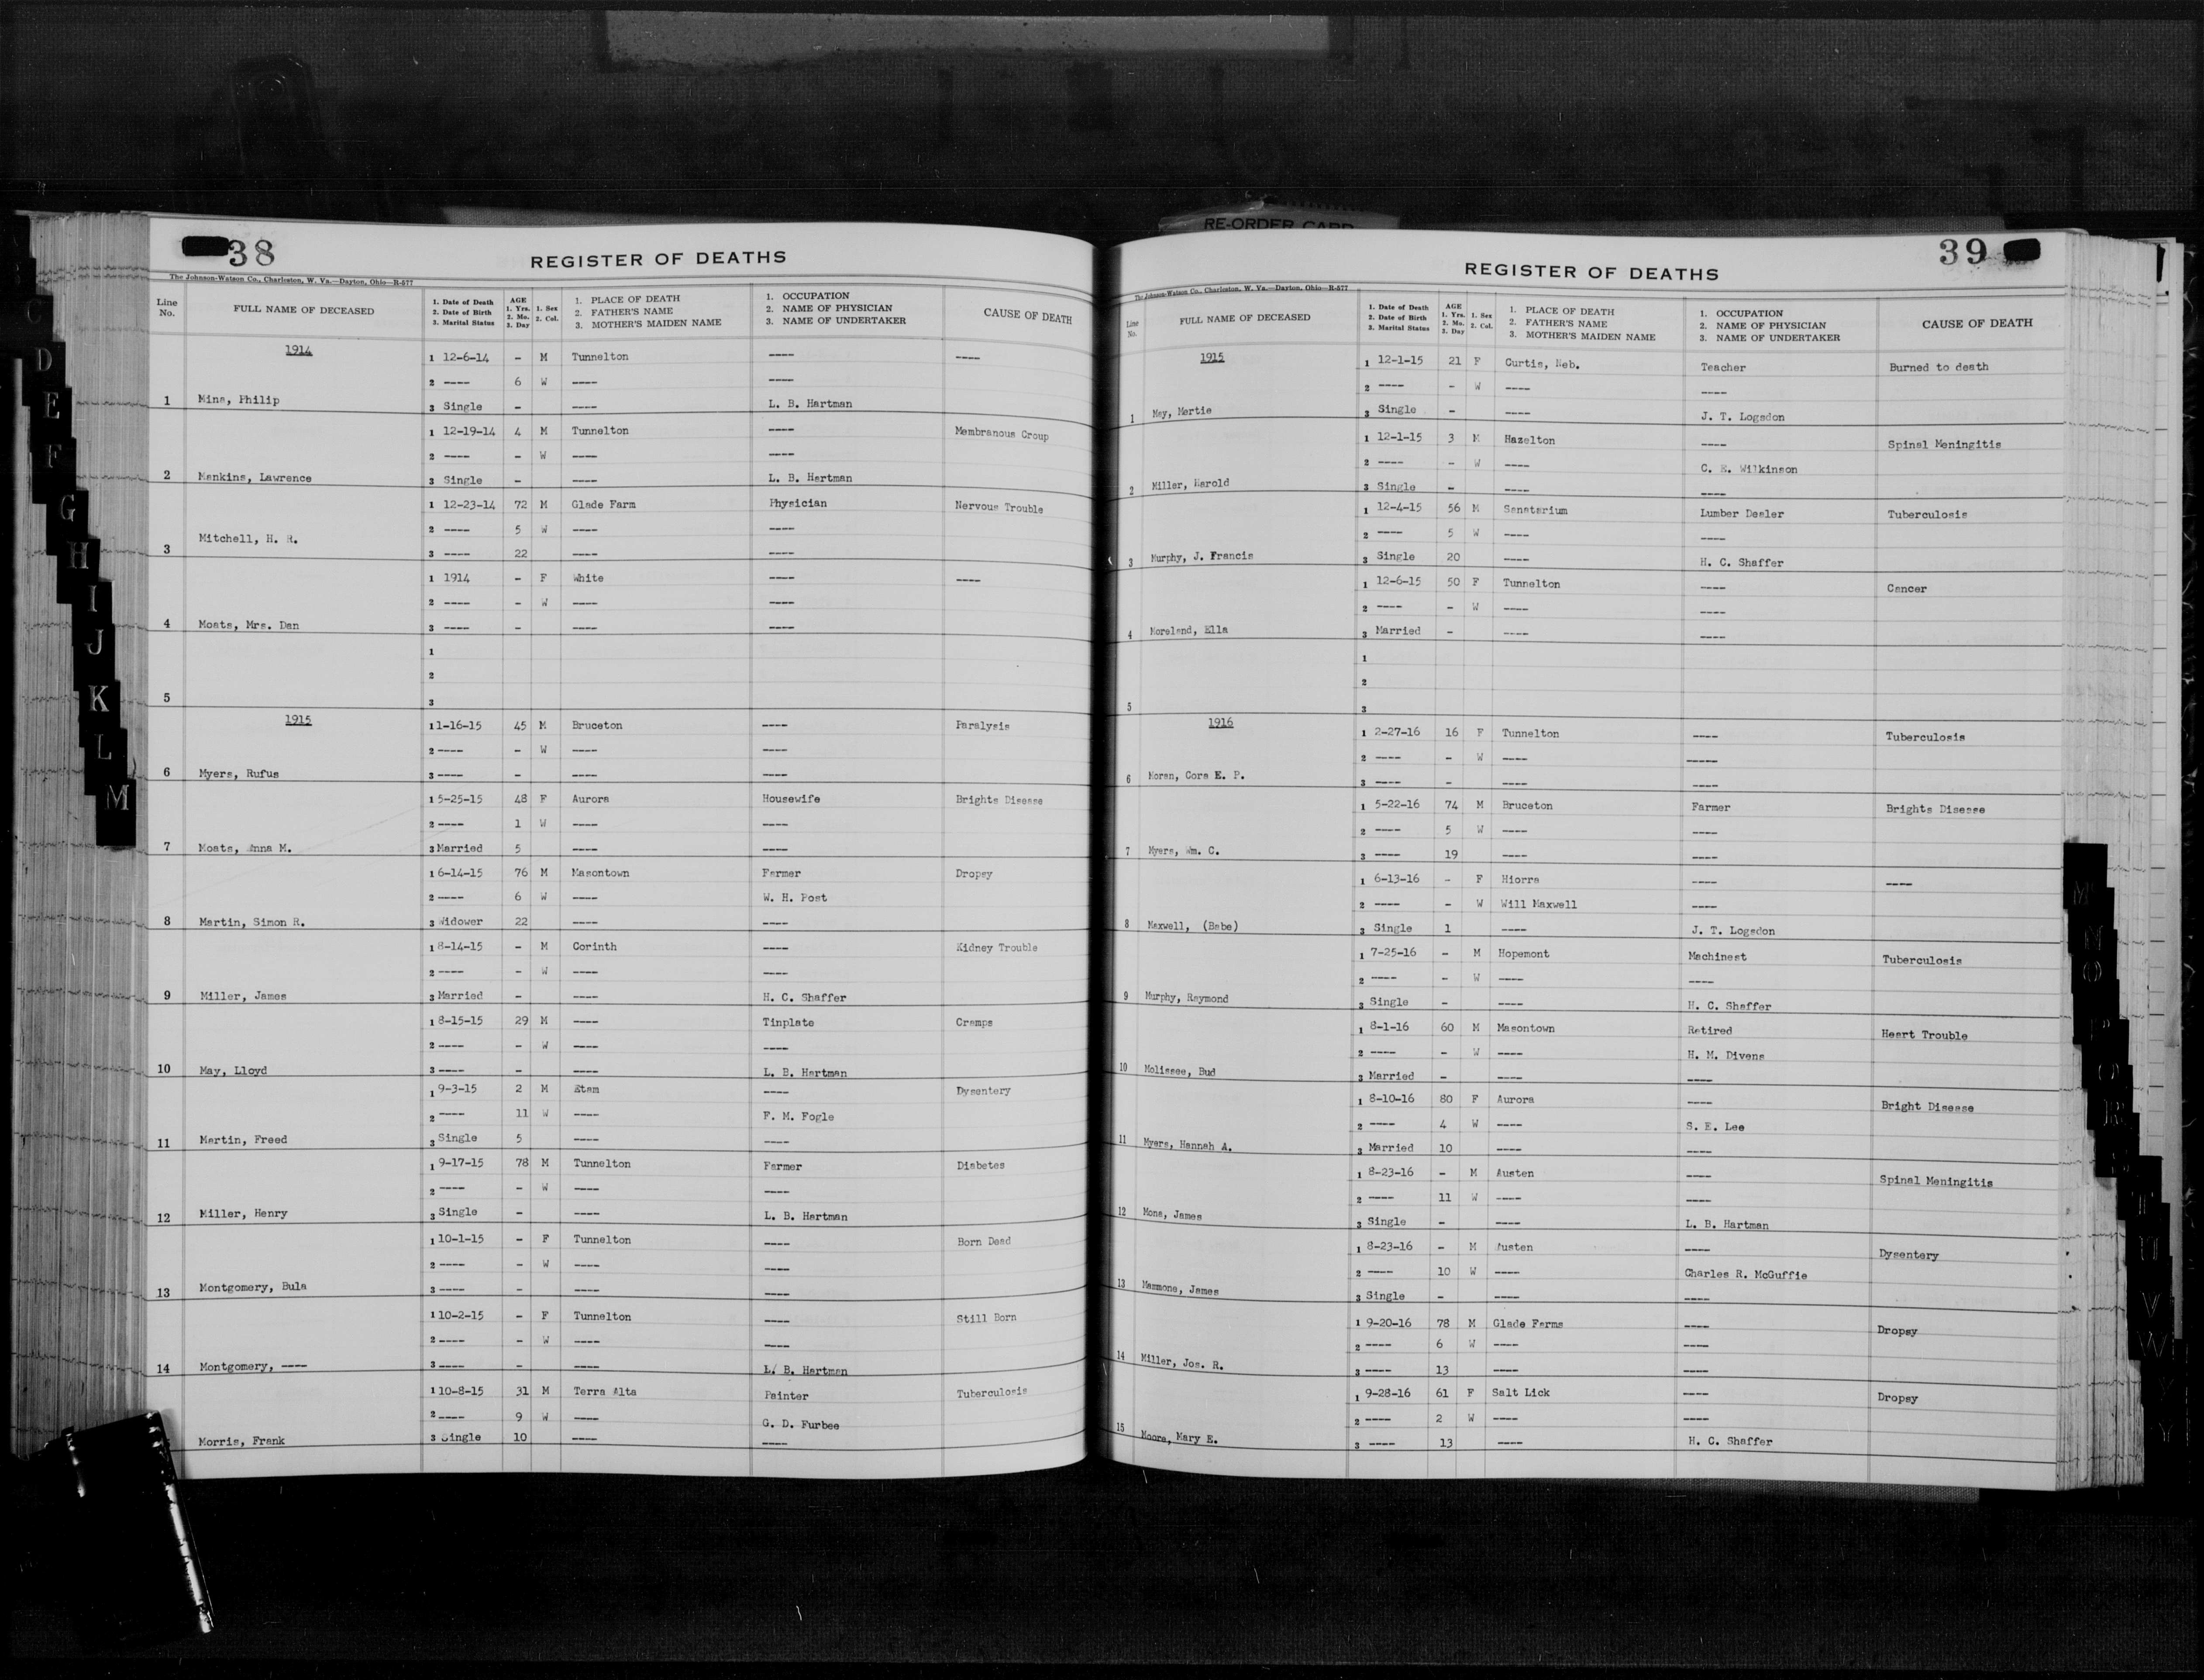 RE-ORDER CARD
38
REGISTER OF DEATHS
The Johnson-Watson Co., Charleston, W. Va.—Dayton, Ohio—R-577
Line No. FULL NAME OF DECEASED 1. Date of Death 2. Date of Birth 3. Marital Status AGE 1. Yrs. 2. Mo. 3. Day 1. Sex 2. Col. 1. PLACE OF DEATH 2. FATHER'S NAME 3. MOTHER'S MAIDEN NAME 1. OCCUPATION 2. NAME OF PHYSICIAN 3. NAME OF UNDERTAKER CAUSE OF DEATH
1914
1 12-6-14 - M Tunnelton ---- ----
2 ---- 6 W ---- ----
1 Mina, Philip 3 Single - ---- L. B. Hartman
1 12-19-14 4 M Tunnelton ---- Membranous Croup
2 ---- - W ---- ----
2 Mankins, Lawrence 3 Single - ---- L. B. Hartman
1 12-23-14 72 M Glade Farm Physician Nervous Trouble
2 ---- 5 W ---- ----
3 Mitchell, H. R. 3 ---- 22 ---- ----
1 1914 - F White ---- ----
2 ---- - W ---- ----
4 Moats, Mrs. Dan 3 ---- - ---- ----
1
2
5 3
1915
1 1-16-15 45 M Bruceton ---- Paralysis
2 ---- - W ---- ----
6 Myers, Rufus 3 ---- - ---- ----
1 5-25-15 48 F Aurora Housewife Brights Disease
2 ---- 1 W ---- ----
7 Moats, Anna M. 3 Married 5 ---- ----
1 6-14-15 76 M Masontown Farmer Dropsy
2 ---- 6 W ---- W. H. Post
8 Martin, Simon R. 3 Widower 22 ---- ----
1 8-14-15 - M Corinth ---- Kidney Trouble
2 ---- - W ---- ----
9 Miller, James 3 Married - ---- H. C. Shaffer
1 8-15-15 29 M ---- Tinplate Cramps
2 ---- - W ---- ----
10 May, Lloyd 3 ---- - ---- L. B. Hartman
1 9-3-15 2 M Etam ---- Dysentery
2 ---- 11 W ---- F. M. Fogle
11 Martin, Freed 3 Single 5 ---- ----
1 9-17-15 78 M Tunnelton Farmer Diabetes
2 ---- - W ---- ----
12 Miller, Henry 3 Single - ---- L. B. Hartman
1 10-1-15 - F Tunnelton ---- Born Dead
2 ---- - W ---- ----
13 Montgomery, Bula 3 ---- - ---- ----
1 10-2-15 - F Tunnelton ---- Still Born
2 ---- - W ---- ----
14 Montgomery, ---- 3 ---- - ---- L. B. Hartman
1 10-8-15 31 M Terra Alta Painter Tuberculosis
2 ---- 9 W ---- G. D. Furbee
Morris, Frank 3 Single 10 ---- ----
39
REGISTER OF DEATHS
The Johnson-Watson Co., Charleston, W. Va.—Dayton, Ohio—R-577
Line No. FULL NAME OF DECEASED 1. Date of Death 2. Date of Birth 3. Marital Status AGE 1. Yrs. 2. Mo. 3. Day 1. Sex 2. Col. 1. PLACE OF DEATH 2. FATHER'S NAME 3. MOTHER'S MAIDEN NAME 1. OCCUPATION 2. NAME OF PHYSICIAN 3. NAME OF UNDERTAKER CAUSE OF DEATH
1915
1 12-1-15 21 F Curtis, Neb. Teacher Burned to death
2 ---- - W ---- ----
1 May, Mertie 3 Single - ---- J. T. Logsdon
1 12-1-15 3 M Hazelton ---- Spinal Meningitis
2 ---- - W ---- C. E. Wilkinson
2 Miller, Harold 3 Single - ---- ----
1 12-4-15 56 M Sanatarium Lumber Dealer Tuberculosis
2 ---- 5 W ---- ----
3 Murphy, J. Francis 3 Single 20 ---- H. C. Shaffer
1 12-6-15 50 F Tunnelton ---- Cancer
2 ---- - W ---- ----
4 Moreland, Ella 3 Married - ---- ----
1
2
5 3
1916
1 2-27-16 16 F Tunnelton ---- Tuberculosis
2 ---- - W ---- -----
6 Moran, Cora E. P. 3 ---- - ---- ----
1 5-22-16 74 M Bruceton Farmer Brights Disease
2 ---- 5 W ---- ----
7 Myers, Wm. C. 3 ---- 19 ---- ----
1 6-13-16 - F Hiorra ---- ----
2 ---- - W Will Maxwell ----
8 Maxwell, (Babe) 3 Single 1 ---- J. T. Logsdon
1 7-25-16 - M Hopemont Machinest Tuberculosis
2 ---- - W ---- ----
9 Murphy, Raymond 3 Single - ---- H. C. Shaffer
1 8-1-16 60 M Masontown Retired Heart Trouble
2 ---- - W ---- H. M. Divens
10 Molissee, Bud 3 Married - ---- ----
1 8-10-16 80 F Aurora ---- Bright Disease
2 ---- 4 W ---- S. E. Lee
11 Myers, Hannah A. 3 Married 10 ---- ----
1 8-23-16 - M Austen ---- Spinal Meningitis
2 ---- 11 W ---- ----
12 Mona, James 3 Single - ---- L. B. Hartman
1 8-23-16 - M Austen ---- Dysentery
2 ---- 10 W ---- Charles R. McGuffie
13 Mammone, James 3 Single - ---- ----
1 9-20-16 78 M Glade Farms ---- Dropsy
2 ---- 6 W ---- ----
14 Miller, Jos. R. 3 ---- 13 ---- ----
1 9-28-16 61 F Salt Lick ---- Dropsy
2 ---- 2 W ---- ----
15 Moore, Mary E. 3 ---- 13 ---- H. C. Shaffer
C
D
E
F
G
H
I
J
K
L
M